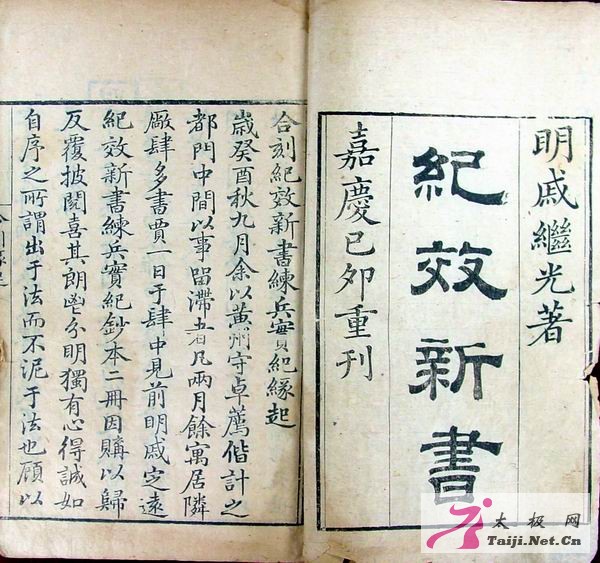 明戚繼光著
紀效新書
嘉慶己卯重刊
合刻紀效新書練兵實紀緣起
歲癸酉秋九月余以黃州守卓薦偕計之
都門中間以事畱滯者凡兩月餘寓居隣
廠肆多書賈一日于肆中見前明戚定遠
紀效新書練兵實紀鈔本二冊因購以歸
反覆披閱喜其朗鬯分明獨有心得誠如
自序之所謂出于法而不泥于法也顧以
太极网
Taiji.Net.Cn